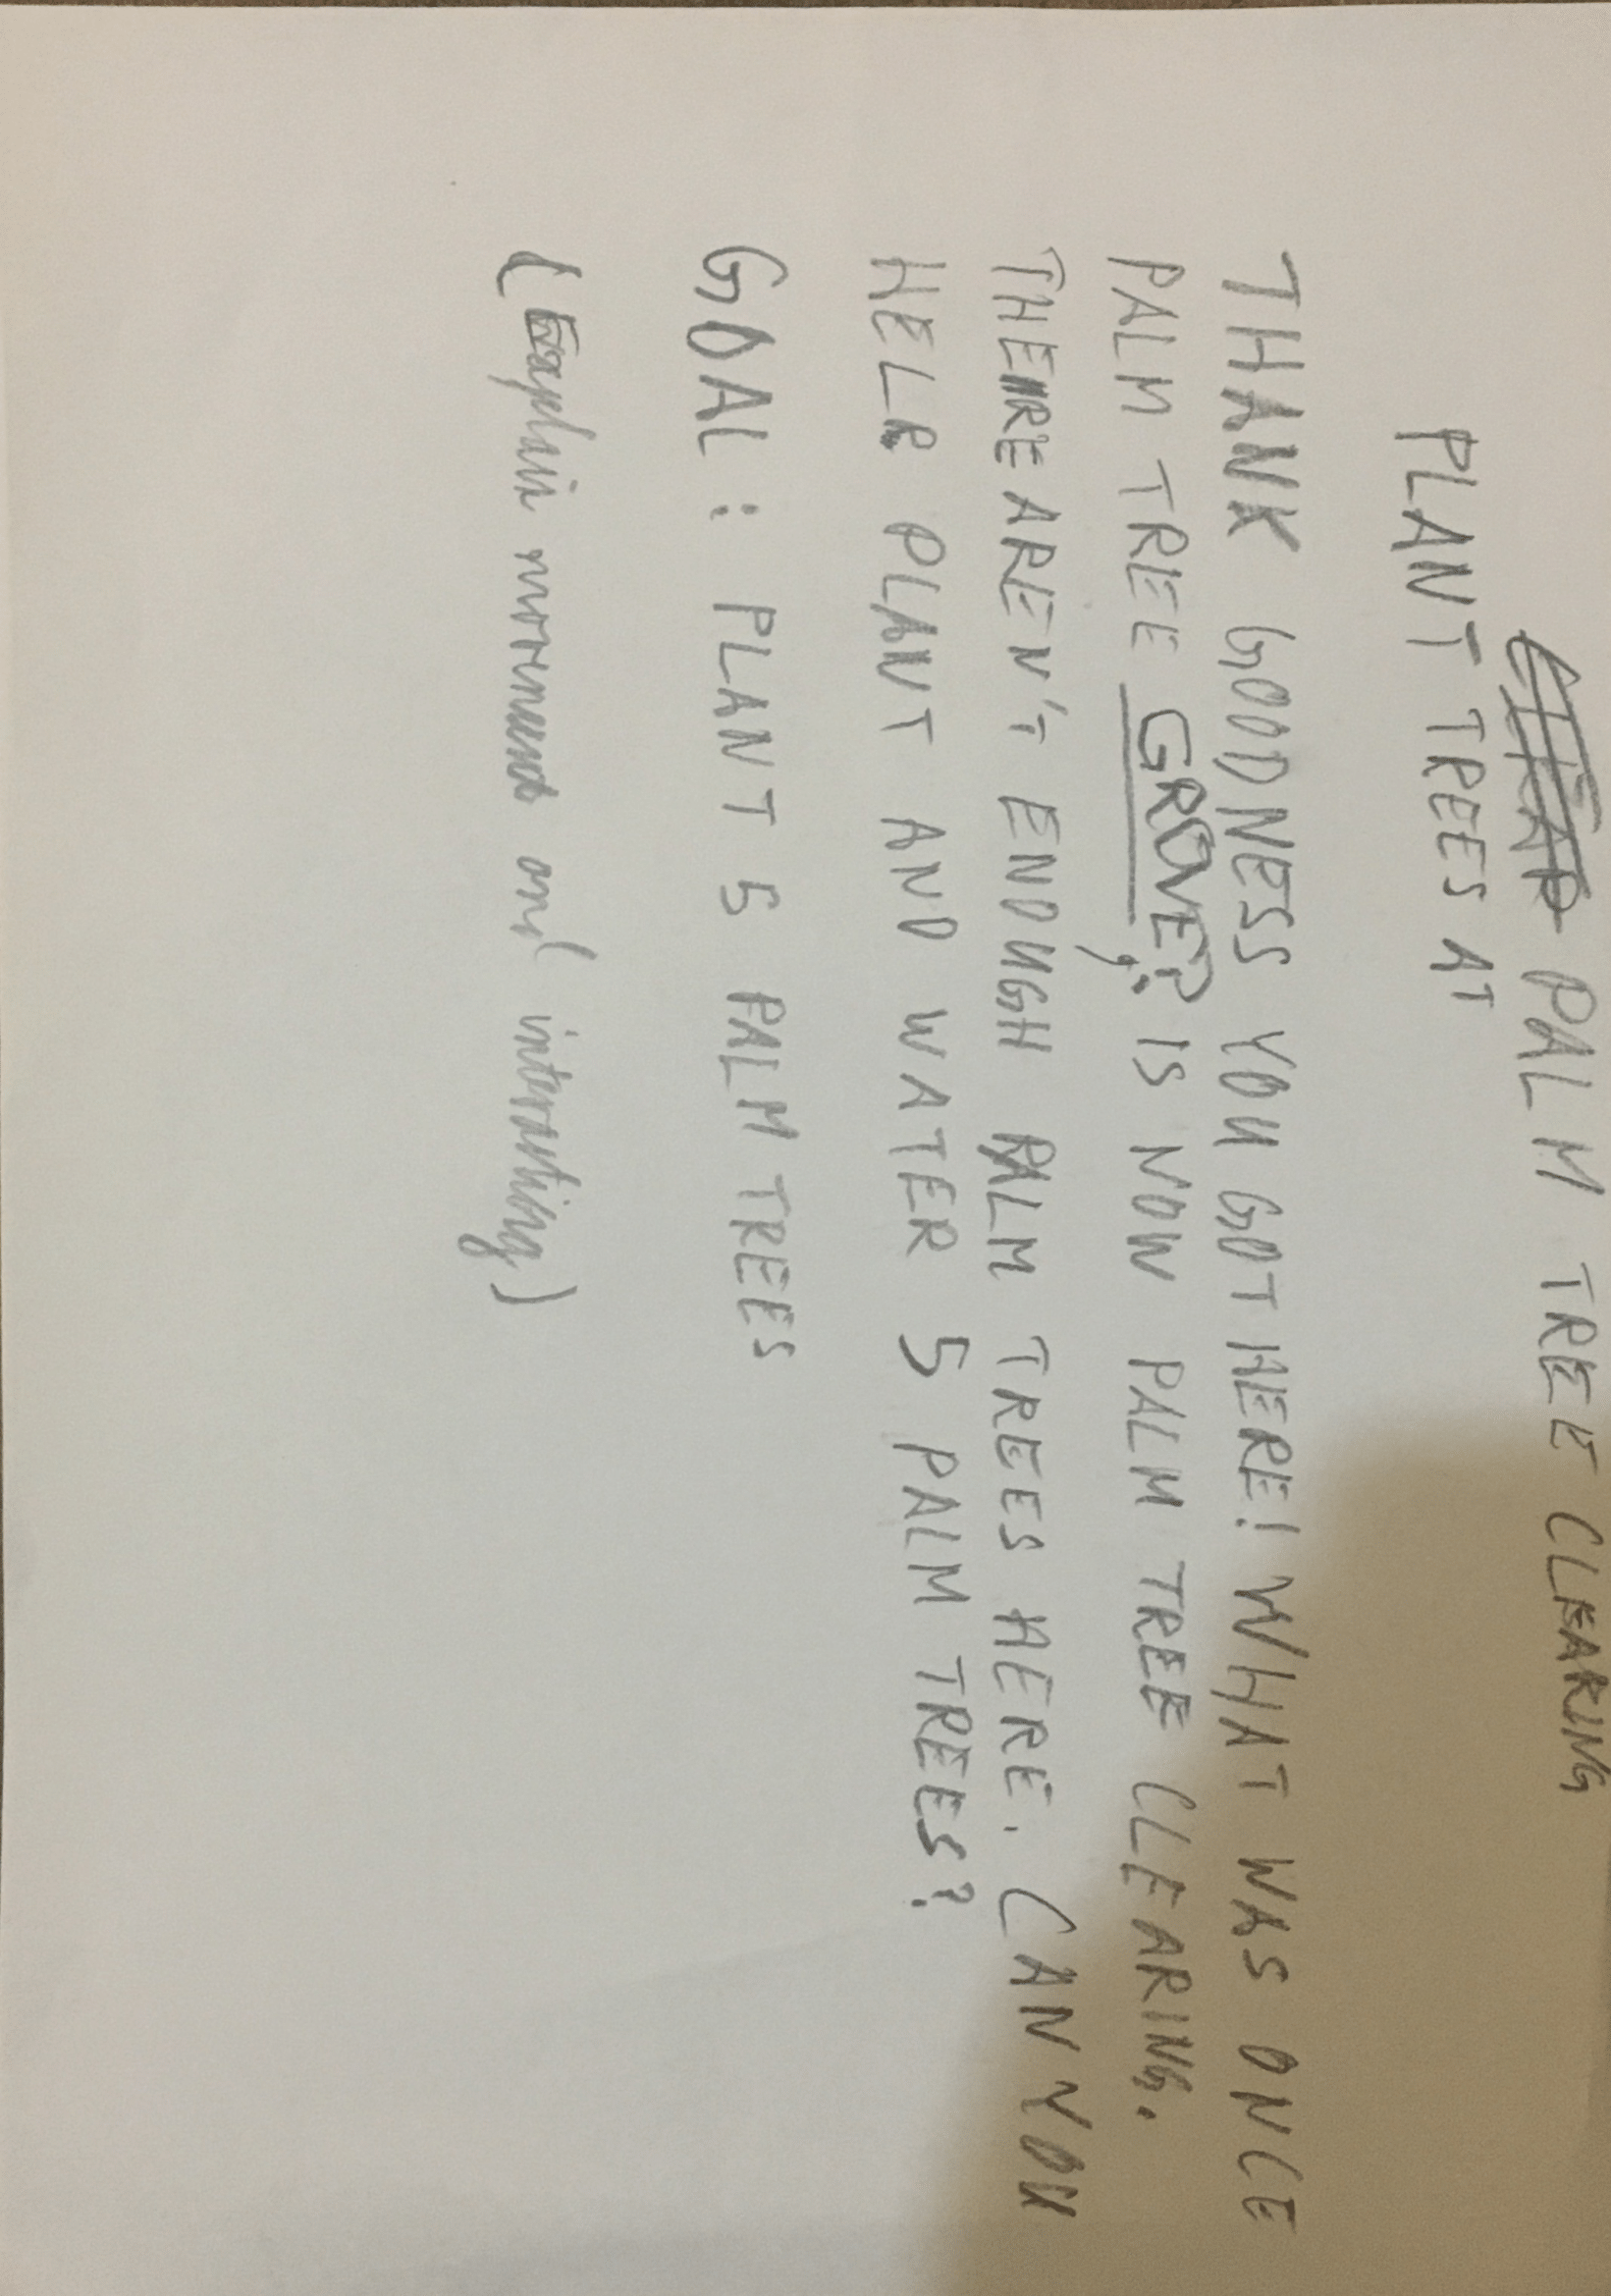 PALM TREE CLEARING
PLANT TREES AT
THANK GOODNESS YOU GOT HERE! WHAT WAS ONCE
PALM TREE GROVE? IS NOW PALM TREE CLEARING.
THERE AREN'T ENOUGH PALM TREES HERE. CAN YOU
HELP PLANT AND WATER 5 PALM TREES?
GOAL: PLANT 5 PALM TREES
(Explain movement and interacting)